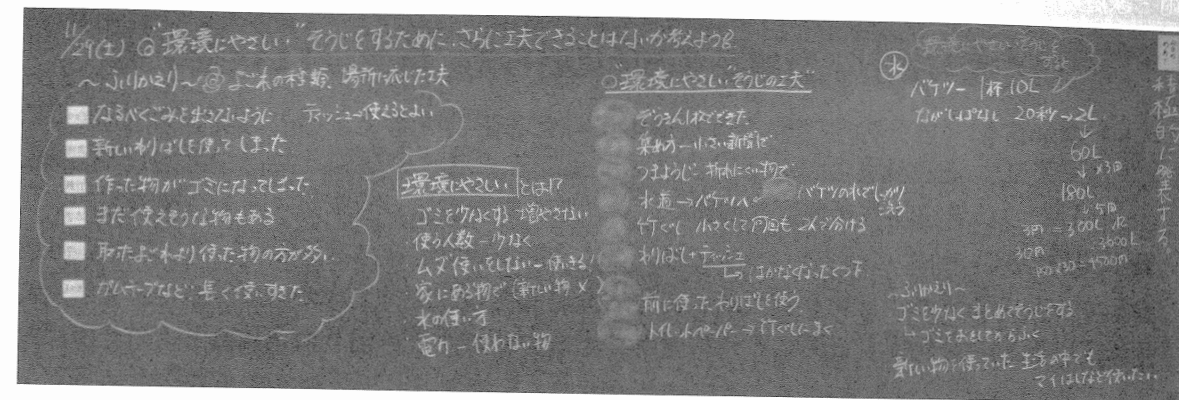 11/29(土) ◎"環境にやさしい"そうじをするために、さらに工夫できることはないか考えよう。
～ふりかえり～ よごれの種類、場所に応じた工夫
なるべくごみを出さないように ティッシュー使えるとよい
新しいわりばしを使ってしまった
作った物がゴミになってしまった
まだ使えそうな物もある
取れたよごれより使った物の方が多い
ガムテープなど、長く使いすぎた
環境にやさしいとは!?
ゴミを少なくする 増やさない
・使う人数―少なく
ムダ使いをしない―使いきる
家にある物で(新しい物×)
水の使い方
・電力―使わない物
◎"環境にやさしい"そうじの工夫"
ぞうきん1枚でできた
つまようじ― 折れにくい物で
水道→バケツへ バケツの水でしっかり
竹ぐし 小さくして何回も 2人で分ける
わりばし+ティッシュ
はかなくなったくつ下
前に使ったわりばしを使う
トイレットペーパー→竹ぐしにまく
水
バケツ一杯10L
ながしっぱなし 20秒→2L
60L
×3回
180L
～ふりかえり～
ゴミを少なく まとめてそうじをする
新しい物を使っていた 生活の中でも
マイはしなど使いたい
積極的に発表する。